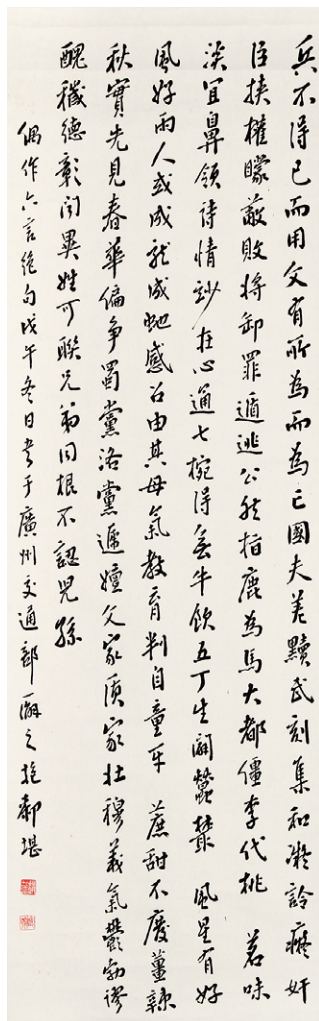 兵不得已而用文有所為而為亡國夫差黷武刻集和凝詅癡奸
臣挾權矇蔽敗將卸罪遁逃公然指鹿為馬大都僵李代桃 茗味
淡宜鼻領詩情妙在心通七椀得無牛飲五丁生闢蠶叢 風星有好
風好雨人或成龍成虵感召由其母氣教育判自童牙 蔗甜不廢薑辣
秋實先見春華偏爭蜀黨洛黨遞嬗文家質家壯穆義氣鬱勃謬
醜穢德彰聞異姓可聯兄弟同根不認兒孫
偶作六言絕句戊午冬日書于廣州交通部